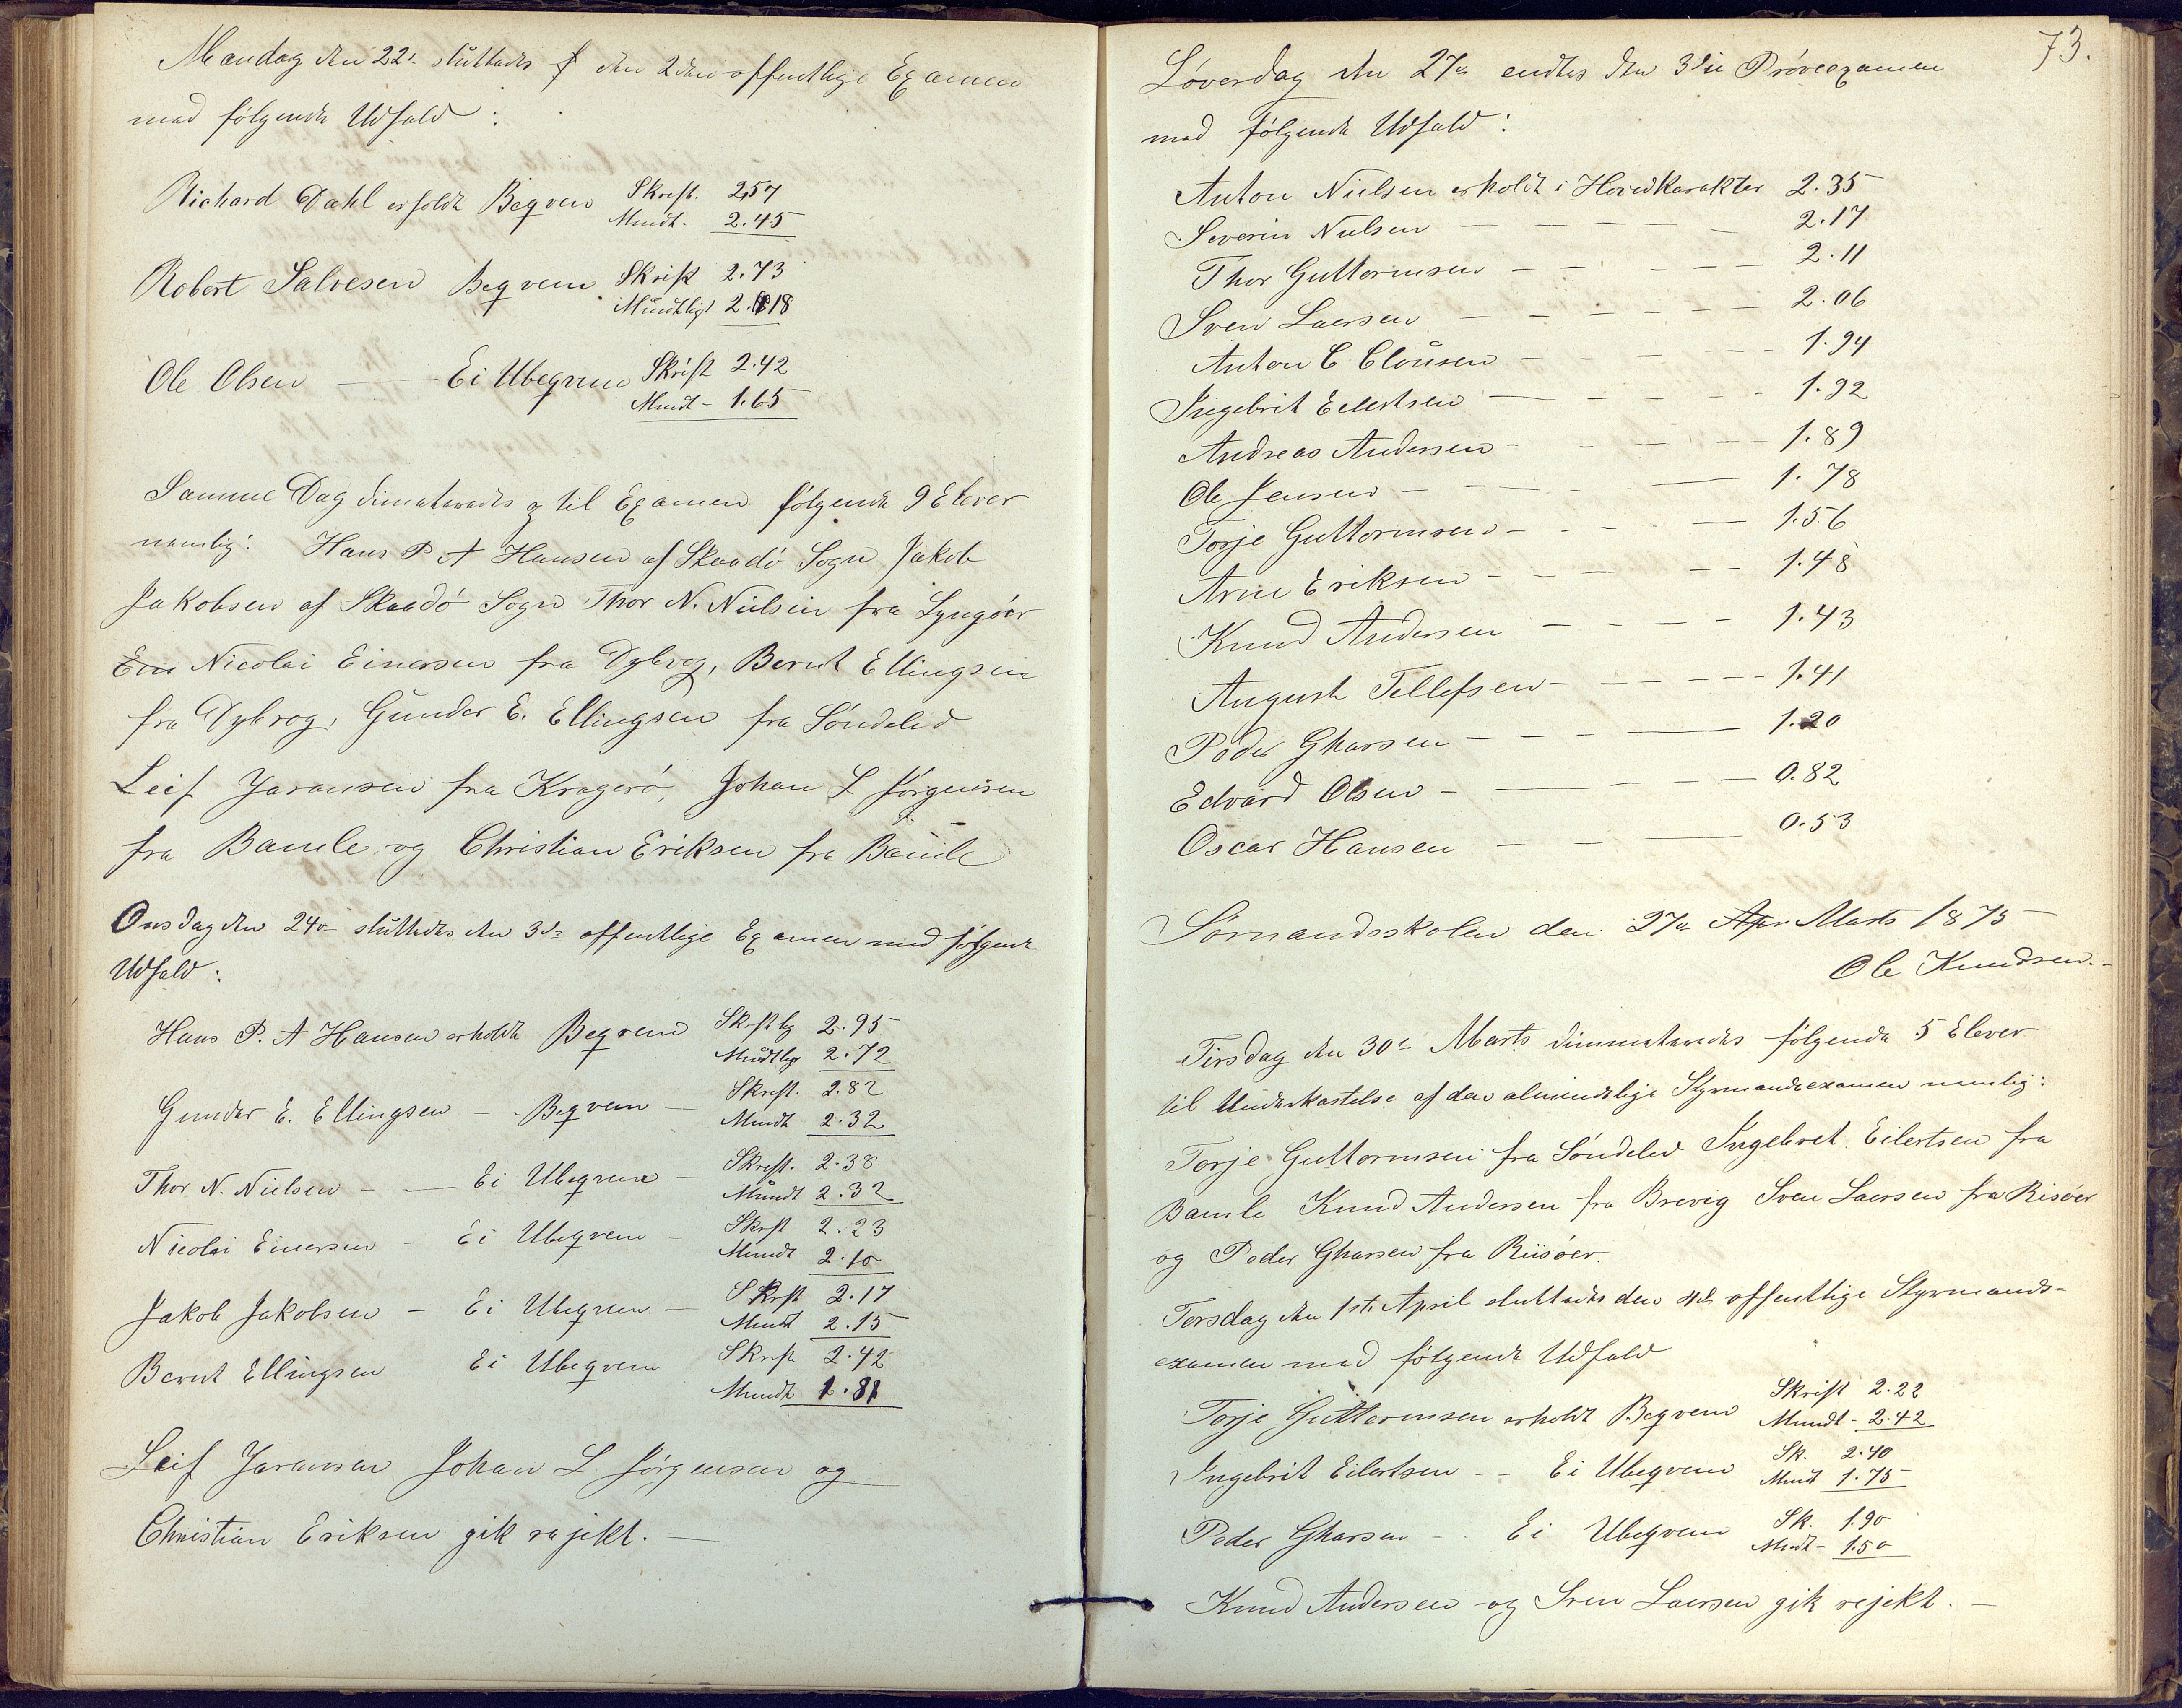 Mandag den 22de sluttedes den 2den offentlige Examen
med følgende Udfald:
Richard Dahl erholdt Beqvem Skrift. 2,57
Mundt. 2.45
Robert Salvesen Beqvem Skrift 2.73
Mündtligt 2.18
Ole Olsen — — Ei Ubeqvem Skrift 2.42
Mundt - 1.65
Samme Dag dimiteredes til Examen følgende 9 Elever
nemlig: Hans P. A Hansen af Skaadø Sogn Jakob
Jakobsen af Skaadø Sogn Thor N. Nielsen fra Lyngøer
Ein Nicolai Einersen fra Dybvog, Bernt Ellingsen
fra Dybvog, Gunder E. Ellingsen fra Søndeled
Leif Joransen fra Kragerø, Johan L Jørgensen
fra Bamle og Christian Eriksen fra Bamle
Onsdag den 24de sluttedes den 3die offentlige Examen med følgende
Udfald:
Hans P. A Hansen erholdt Beqvem Skriftlg 2.95
Mündtlgt 2.72
Gunder E. Ellingsen — Beqvem — Skrift. 2.82
Mundt 2.32
Thor N. Nielsen — — Ei Ubeqvem — Skrift. 2.38
Mündt 2.32
Nicolai Einersen — Ei Ubeqvem — Skrft 2.23
Mundt 2.10
Jakob Jakobsen — Ei Ubeqvem — Skrft 2.17
Mundt 2.15
Bernt Ellingsen Ei Ubeqvem Skrift 2.42
Mundt 1.81
Leif Joransen Johan L Jørgensen og
Christian Eriksen gik rejekt. —
73.
Løverdag den 27de endtes den 3die Prøveexamen
med følgende Udfald:
Anton Nielsen erholdt i Hovedkarakter 2.35
Severin Nielsen — — — — 2.17
Thor Guttormsen — — — — 2.11
Sven Laersen — — — — — 2.06
Anton C. Clousen — — — — 1.94
Ingebrit Eilertsen — — — — 1.92
Andreas Andersen — — — — 1.89
Ole Jensen — — — — 1.78
Torje Guttormsen — — — — 1.56
Arne Eriksen — — — — 1.48
Knud Andersen — — — — 1.43
August Tellefsen — — — — 1.41
Peder Gharsen — — — — 1.20
Edvard Olsen — — — — 0.82
Oscar Hansen — — — 0.53
Sømandsskolen den 27de Apr Marts 1875
Ole Knudsen.
Tirsdag den 30te Marts dimmiteredes følgende 5 Elever
til Underkastelse af den almindelige Styrmandsexamen nemlig:
Torje Guttormsen fra Søndeled Ingebret Eilertsen fra
Bamle Knud Andersen fra Brevig Sven Laersen fra Risøer
og Peder Gharsen fra Riisøer.
Torsdag den 1ste April sluttedes den 4de offentlige Styrmands-
examen med følgende Udfald
Torje Guttormsen erholdt Beqvem Skrift 2.22
Mundt - 2.42
Ingebrit Eilertsen — — Ei Ubeqvem Sk. 2.40
Mundt 1.75
Peder Gharsen — — Ei Ubeqvem Sk. 1.90
Mndt - 1.50
Knud Andersen og Sven Laersen gik rejekt. —